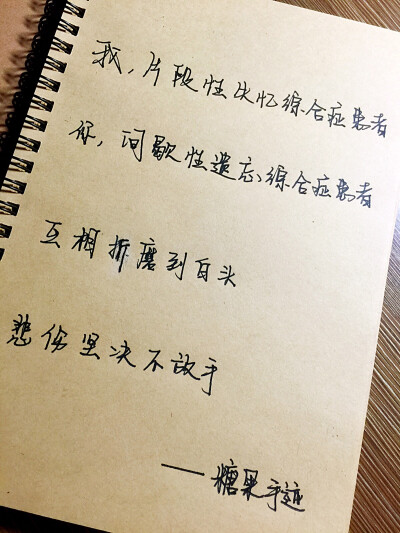 我，片段性失忆综合症患者
你，间歇性遗忘综合症患者
互相折磨到白头
悲伤坚决不放手
——糖果手迹